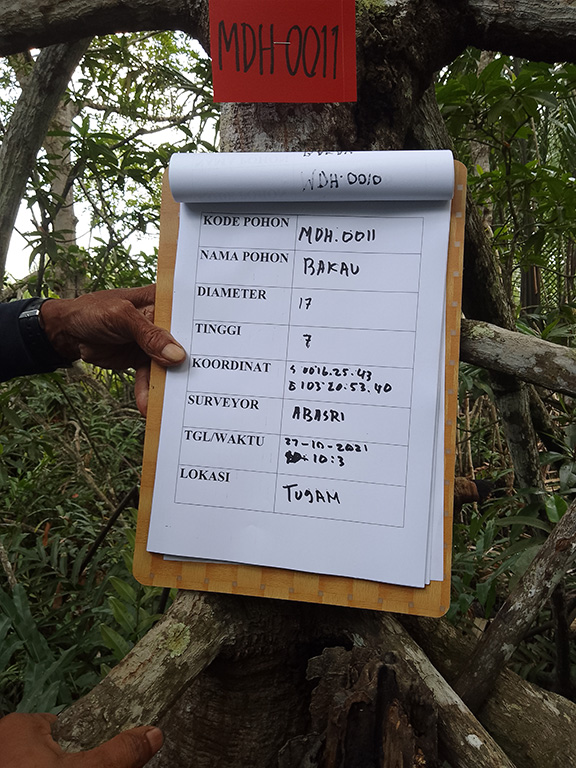 MDH-0011
WDH-0010
KODE POHON MDH.0011
NAMA POHON BAKAU
DIAMETER 17
TINGGI 7
KOORDINAT S 0016.25.43
E 103.20.53.40
SURVEYOR ABASRI
TGL/WAKTU 27-10-2021
10:3
LOKASI TUGAM